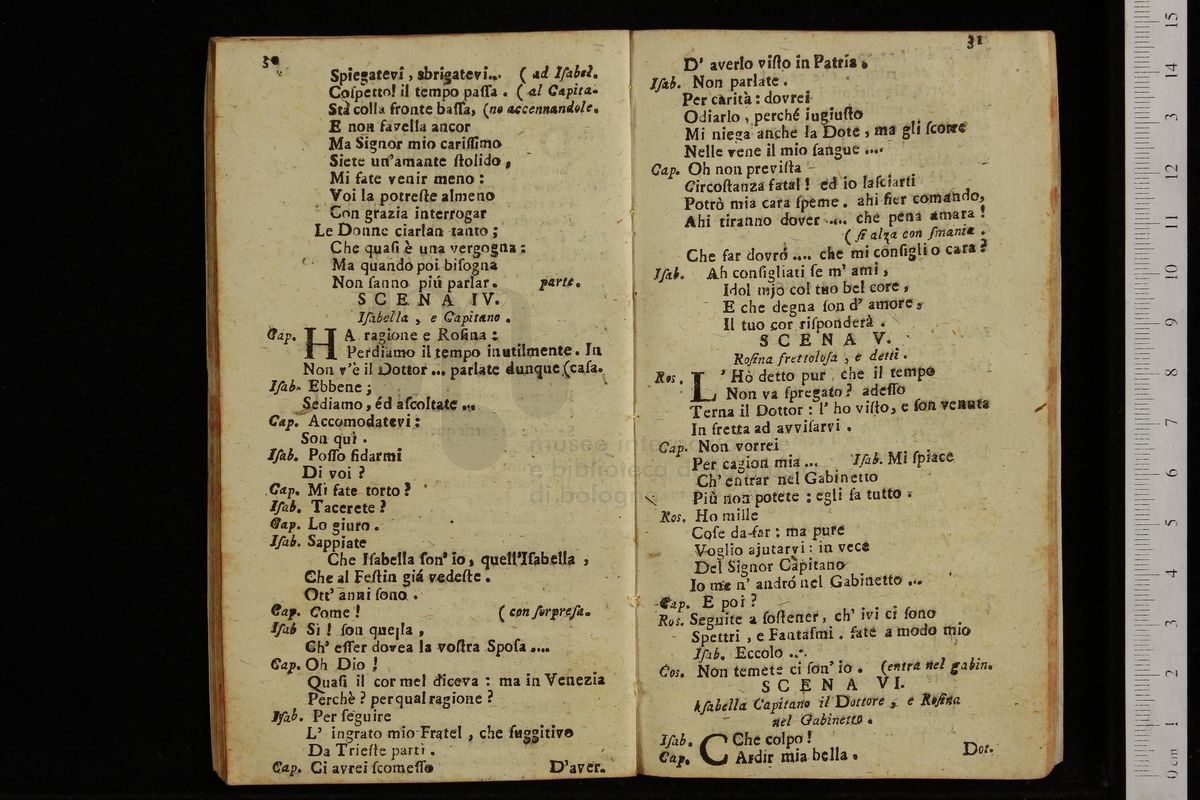 30
Spiegatevi, sbrigatevi... ( ad Isabel.
Cospetto! il tempo passa. ( al Capita-
Stà colla fronte bassa, (no accennandole.
E non favella ancor
Ma Signor mio carissimo
Siete un'amante stolido,
Mi fate venir meno:
Voi la potreste almeno
Con grazia interrogar
Le Donne ciarlan tanto;
Che quasi è una vergogna:
Ma quando poi bisogna
Non sanno piú parlar. parte.
SCENA IV.
Isabella, e Capitano.
Cap. HA ragione e Rosina:
Perdiamo il tempo inutilmente. In
Non v'è il Dottor... parlate dunque (casa.
Isab. Ebbene;
Sediamo, éd ascoltate...
Cap. Accomodatevi:
Son quì.
Isab. Posso fidarmi
Di voi?
Cap. Mi fate torto?
Isab. Tacerete?
Cap. Lo giuro.
Isab. Sappiate
Che Isabella son' io, quell'Isabella,
Che al Festin giá vedeste.
Ott' anni sono.
Cap. Come! ( con sorpresa.
Isab Sì! son quella,
Ch' esser dovea la vostra Sposa....
Cap. Oh Dio!
Quasi il cor mel diceva: ma in Venezia
Perchè? per qual ragione?
Isab. Per seguire
L' ingrato mio Fratel, che fuggitivo
Da Trieste partì.
Cap. Ci avrei scomesso
D'aver.
31
D' averlo visto in Patria.
Isab. Non parlate.
Per carità: dovrei
Odiarlo, perché iugiusto
Mi niega anche la Dote, ma gli scorre
Nelle vene il mio sangue....
Cap. Oh non prevista
Circostanza fatal! ed io lasciarti
Potrò mia cara speme. ahi fier comando,
Ahi tiranno dover.... che pena amara!
( si alza con smania.
Che far dovró.... che mi consigli o cara?
Isab. Ah consigliati se m' ami,
Idol mjo col tuo bel core,
E che degna son d' amore,
Il tuo cor risponderà.
SCENA V.
Rosina frettolosa, e detti.
Ros. L' Hò detto pur, che il tempo
Non va spregato? adesso
Terna il Dottor: l' ho visto, e son venuta
In fretta ad avvisarvi.
Cap. Non vorrei
Per cagion mia... Isab. Mi spiace
Ch' entrar nel Gabinetto
Più non potete: egli sa tutto.
Ros. Ho mille
Cose da far: ma pure
Voglio ajutarvi: in vece
Del Signor Capitano
Io me n' andró nel Gabinetto...
Cap. E poi?
Ros. Seguite a sostener, ch' ivi ci sono
Spettri, e Fantasmi. fate a modo mio
Isab. Eccolo...
Cos. Non temete ci son' io. (entra nel gabin.
SCENA VI.
Isabella Capitano il Dottore, e Rosina
nel Gabinetto.
Isab. CChe colpo!
Cap. Ardir mia bella.
Dot.